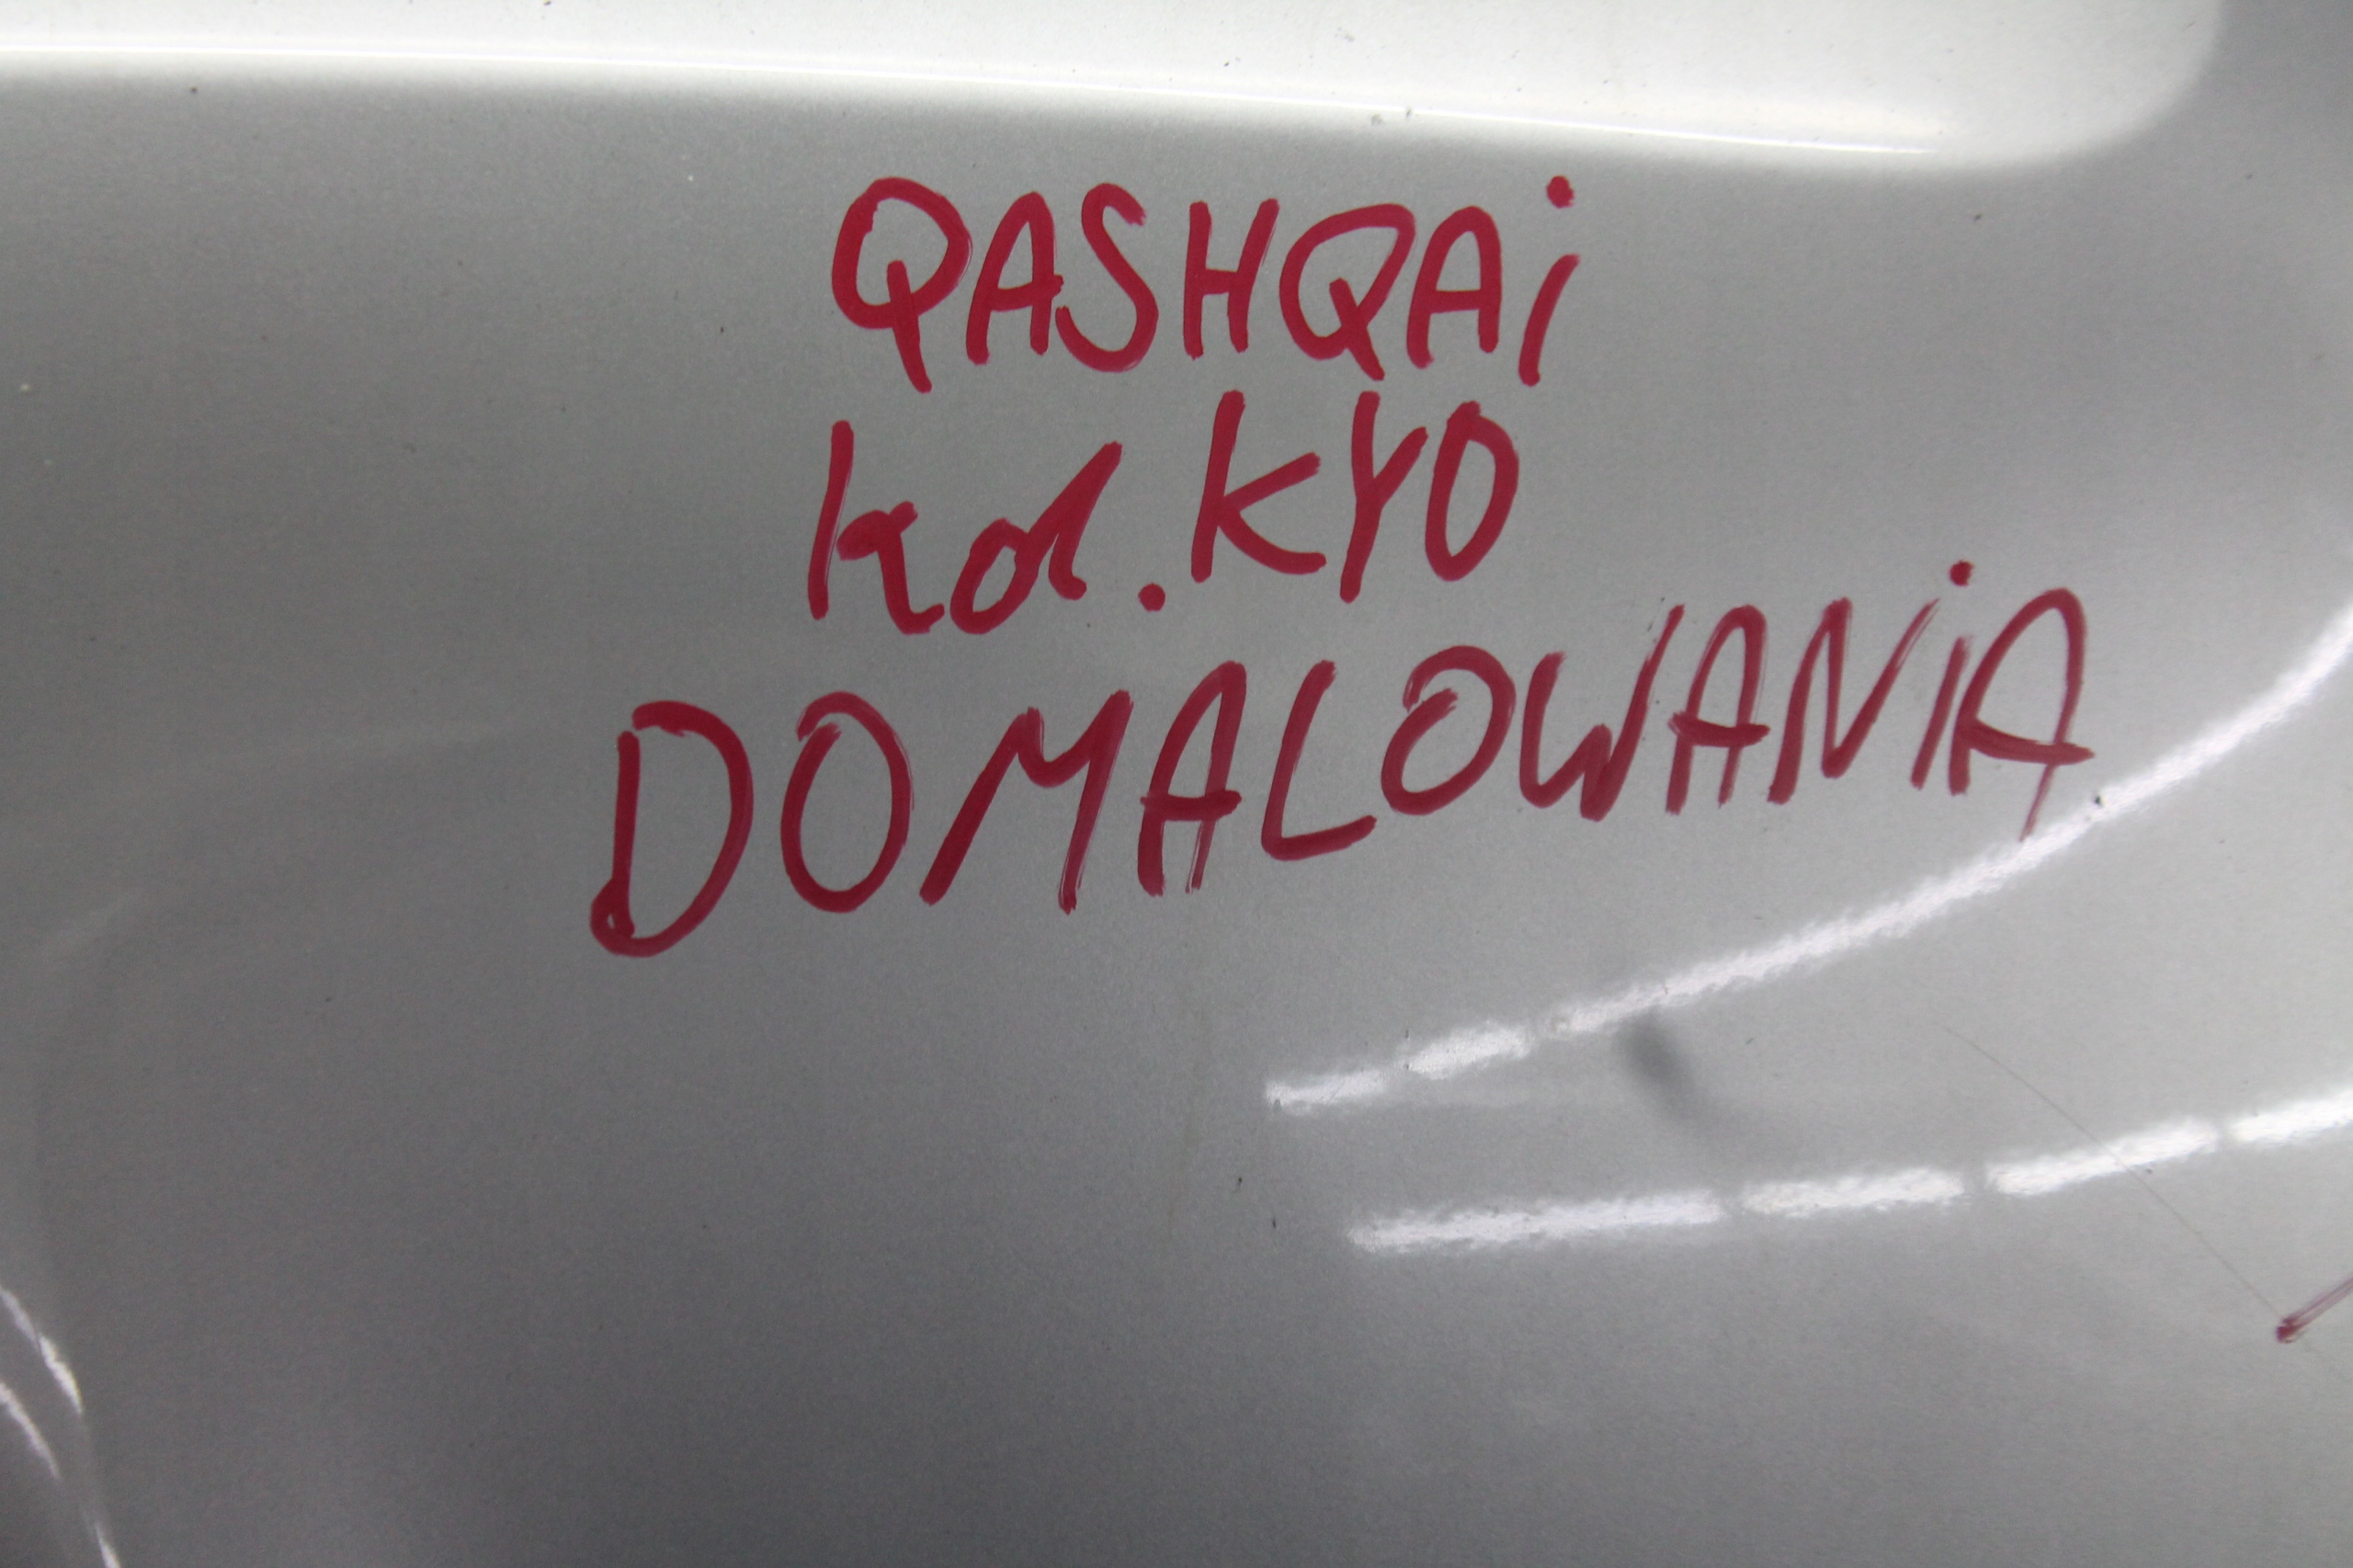 QASHQAi
kol. KYO
DO MALOWANiA